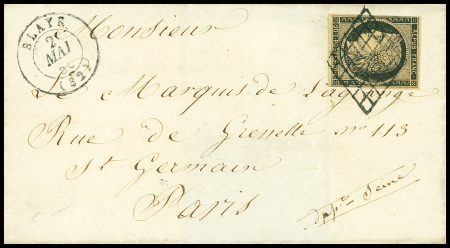 BLAYE
2
MAI
(32)
REPUB. FRANC.
Monsieur
Marquis de Lagrange
Rue de Grenelle no 113
St Germain
Paris
Dépt Seine